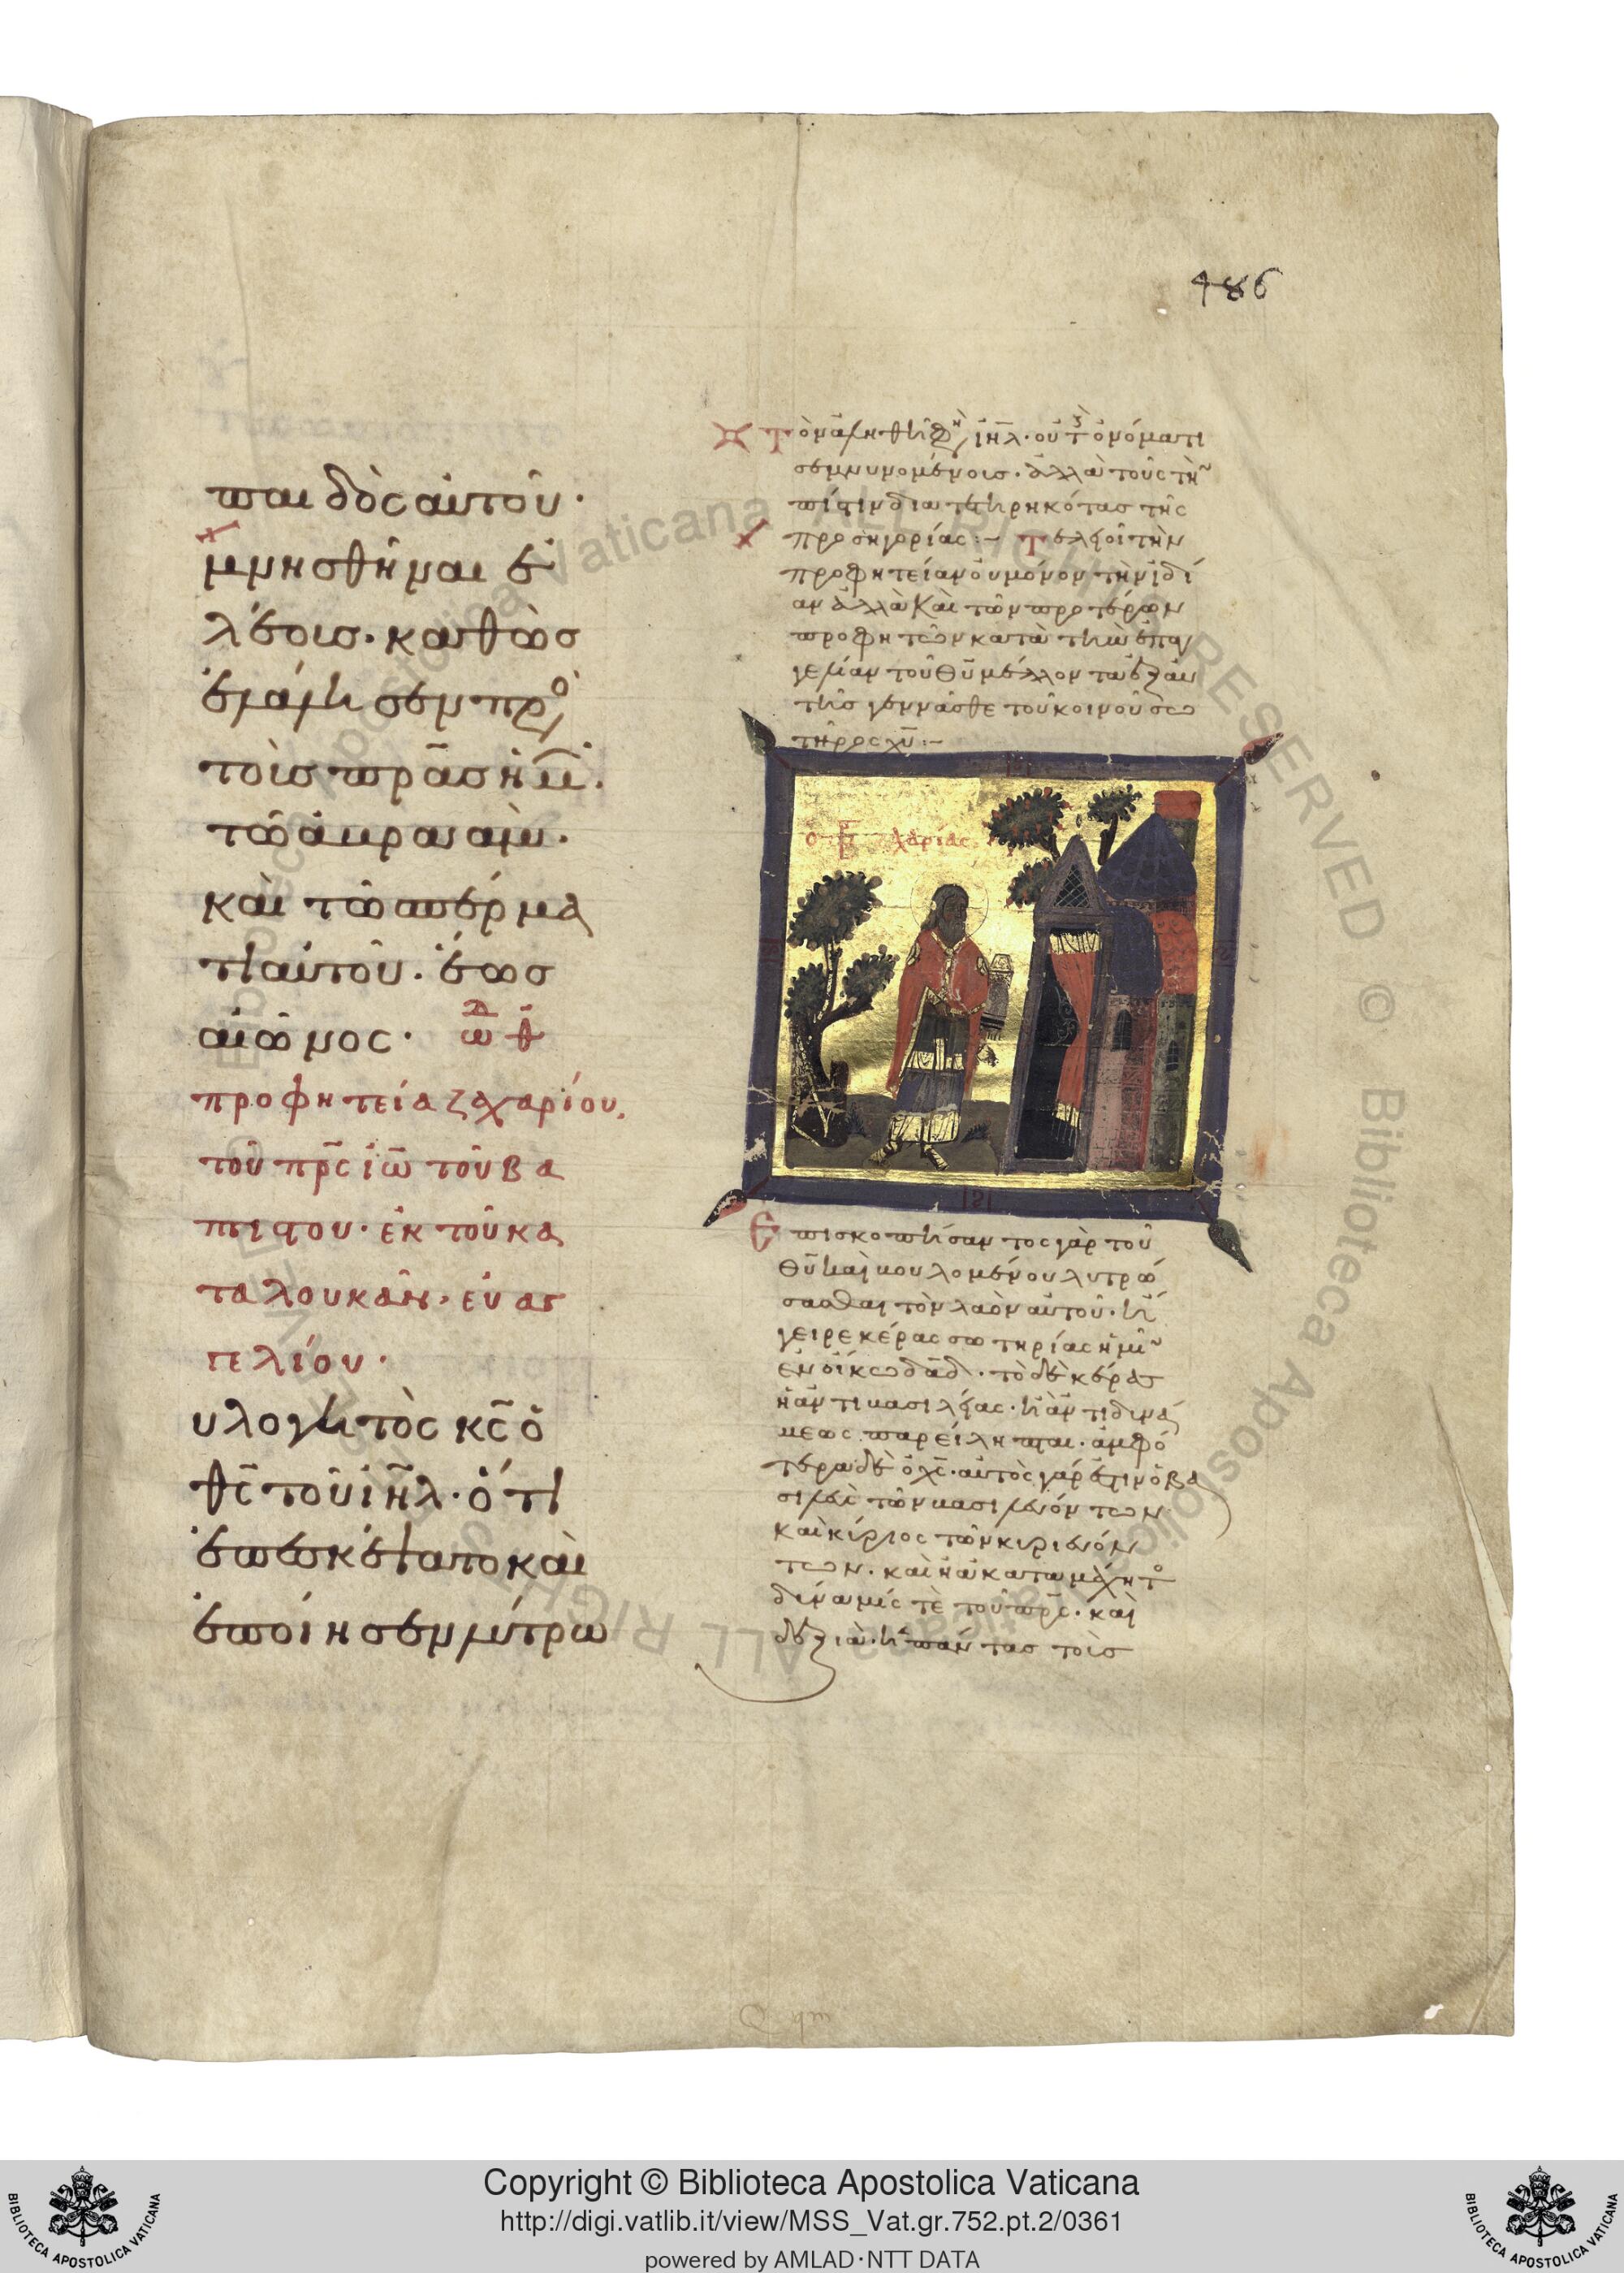 486
παιδὸς αὐτοῦ·
μνησθῆναι ἐ
λέους· καθὼς
ἐλάλησεν πρὸ
τοὺς πρ̅ας ἡμ̅·
τῶ ἀβραὰμ·
καὶ τῶ σπέρμα
τι αὐτοῦ· ἕως
αἰῶνος· ὠδ θ
προφητεία ζαχαρίου
τοῦ πρ̅ς ἰω̅ τοῦ βα
πτιστου· ἐκ τοῦ κα
τα λουκᾶν· εὐαγ
γελίου·
υλογητὸς κ̅ς ὁ
θ̅ς τοῦ ἰη̅λ· ὅτι
ἐπεσκέψατο καὶ
ἐποίησεν λύτρω
ἰη̅λ· οὐ τ ὀνόματι
σεμνυνομένοις· ἀλλὰ τοὺς τὴν
πίστιν διατετηρηκότας τῆς
προσηγορίας:– Τελεῖ τὴν
προφητείαν οὐ μόνον τὴν ἰδί
αν ἀλλὰ καὶ τῶν προτέρων
προφητῶν κατὰ τὴν ἐπαγ
γελίαν τοῦ θ̅υ μέλλοντα ἐξ αὐ
τῆς γεννᾶσθε τοῦ κοινοῦ σω
τῆρος χ̅υ:–
ὁ χαρίας
Ἐπισκοπήσαντος γὰρ τοῦ
θ̅υ καὶ βουλομένου λυτρώ
σασθαι τὸν λαὸν αὐτοῦ· ἤ
γειρε κέρας σωτηρίας ἡμῖν
ἐν οἴκω δα̅δ· τὸ δὲ κέρας
ἢ ἀντι βασιλείας· ἢ ἀντι δυνά
μεως παρείληπται· ἀμφό
τερα δὲ ὁ χ̅ς· αὐτὸς γάρ ἐστιν ὁ βα
σιλεὺς τῶν βασιλευόντων
καὶ κύριος τῶν κυριευόν
των· καὶ ἡ ἀκαταμάχητο
δύναμίς τὲ τοῦ πρ̅ς· καὶ
δεξιὰ· ἢ πάντας τοὺς
Copyright © Biblioteca Apostolica Vaticana
http://digi.vatlib.it/view/MSS_Vat.gr.752.pt.2/0361
powered by AMLAD·NTT DATA
BIBLIOTECA APOSTOLICA VATICANA
BIBLIOTECA APOSTOLICA VATICANA